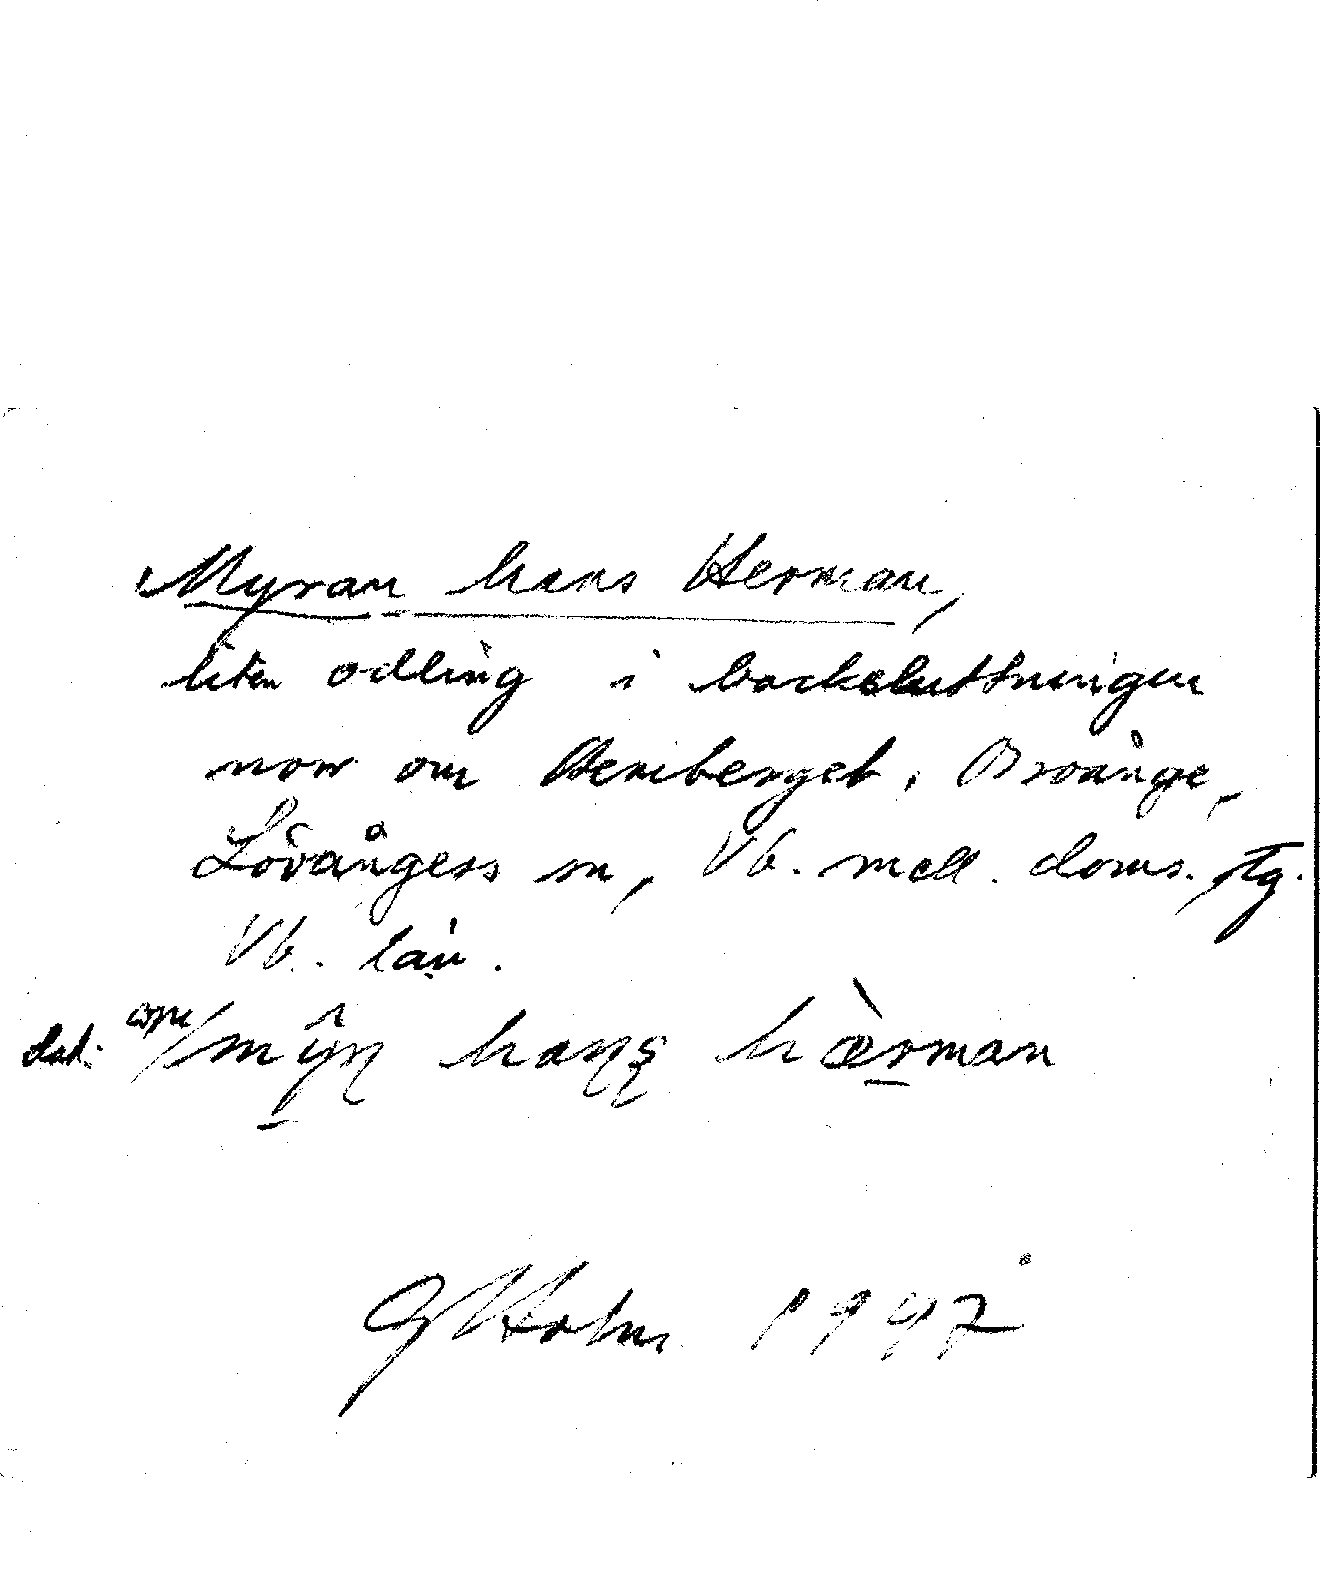 Myran hans Herman,
liten odling i backsluttningen
norr om Stenberget, Broänge,
Lövångers sn, Vb. mell. doms. tg.
Vb. län.
dat. mŷɳ haɳș hæ̀rman
GHolm 1947